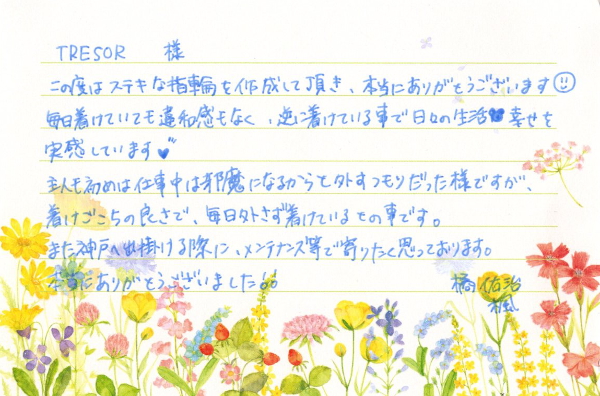 TRESOR 様
この度はステキな指輪を作成して頂き、本当にありがとうございます☺
毎日着けていても違和感もなく、逆に着けている事で日々の生活♥幸せを
実感しています♥
主人も初めは仕事中は邪魔になるからと外すつもりだった様ですが、
着けごこちの良さで、毎日外さず着けているとの事です。
また神戸へ出掛ける際に、メンテナンス等で寄りたく思っております。
本当にありがとうございました!!
橘 佑治
楓